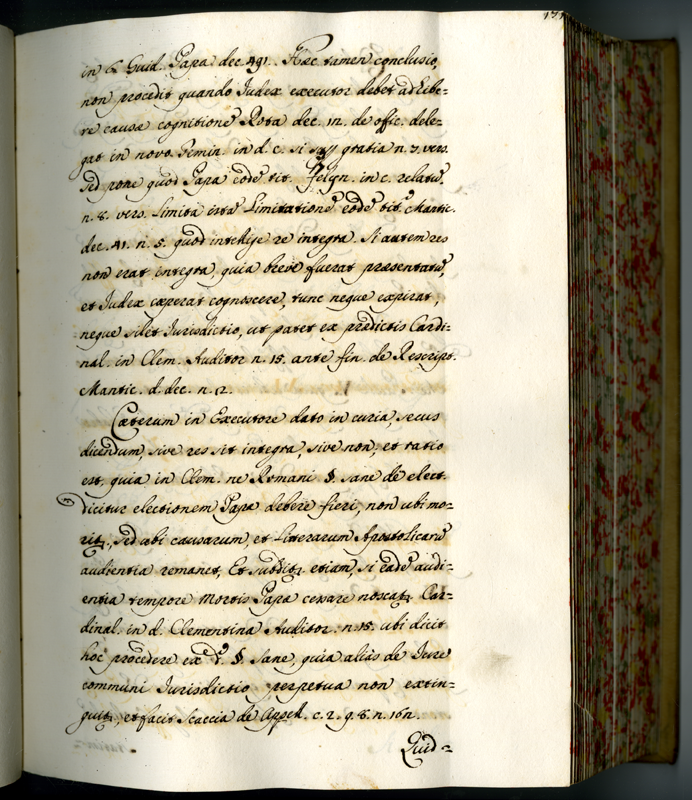 in 6. Guid. Papa dec. 491. Hæc tamen conclusio,
non procedit quando Iudex executor debet adhibe=
re causæ cognitionē Rota dec. in. de offic. dele=
gat in novo. Gemin. in d. c. si sup gratia n. 7. vers.
sed pone quod Papa eodē tit. Felyn. in c. relatū,
n. 8. vers. limita istā limitationē eodē tit.º Mantic.
dec. 41. n. 5. quod intellige re integra. Si autem res
non erat integra, quia breve fuerat præsentatū,
et Iudex cæperat cognoscere, tunc neque expirat,
neque silet Iurisdictio, ut patet ex prædictis Cardi=
nal. in Clem. Auditor n. 15. ante fin. de Rescript.
Mantic. d. dec. n. 12.
Cæterum in Executore dato in curia, secus
dicendum, sive res sit integra, sive non, et ratio
est, quia in Clem. ne Romani §. sane de elect.
dicitur electionem Papæ debere fieri, non ubi mo=
ritꝶ, sed ubi causarum, et Literarum Apostolicarū
audientia remanet, Et subditꝶ etiam, si eadē audi=
entia tempore mortis Papæ cessare noscatꝶ. Car=
dinal. in d. Clementina Auditor. n. 15. ubi dicit
hoc procedere ex d.º §. Sane, quia aliàs de Iure
communi Iurisdictio perpetua non extin=
guitꝶ, et facit Scaccia de Appell. c. 2. q. 8. n. 16n.
Quid=